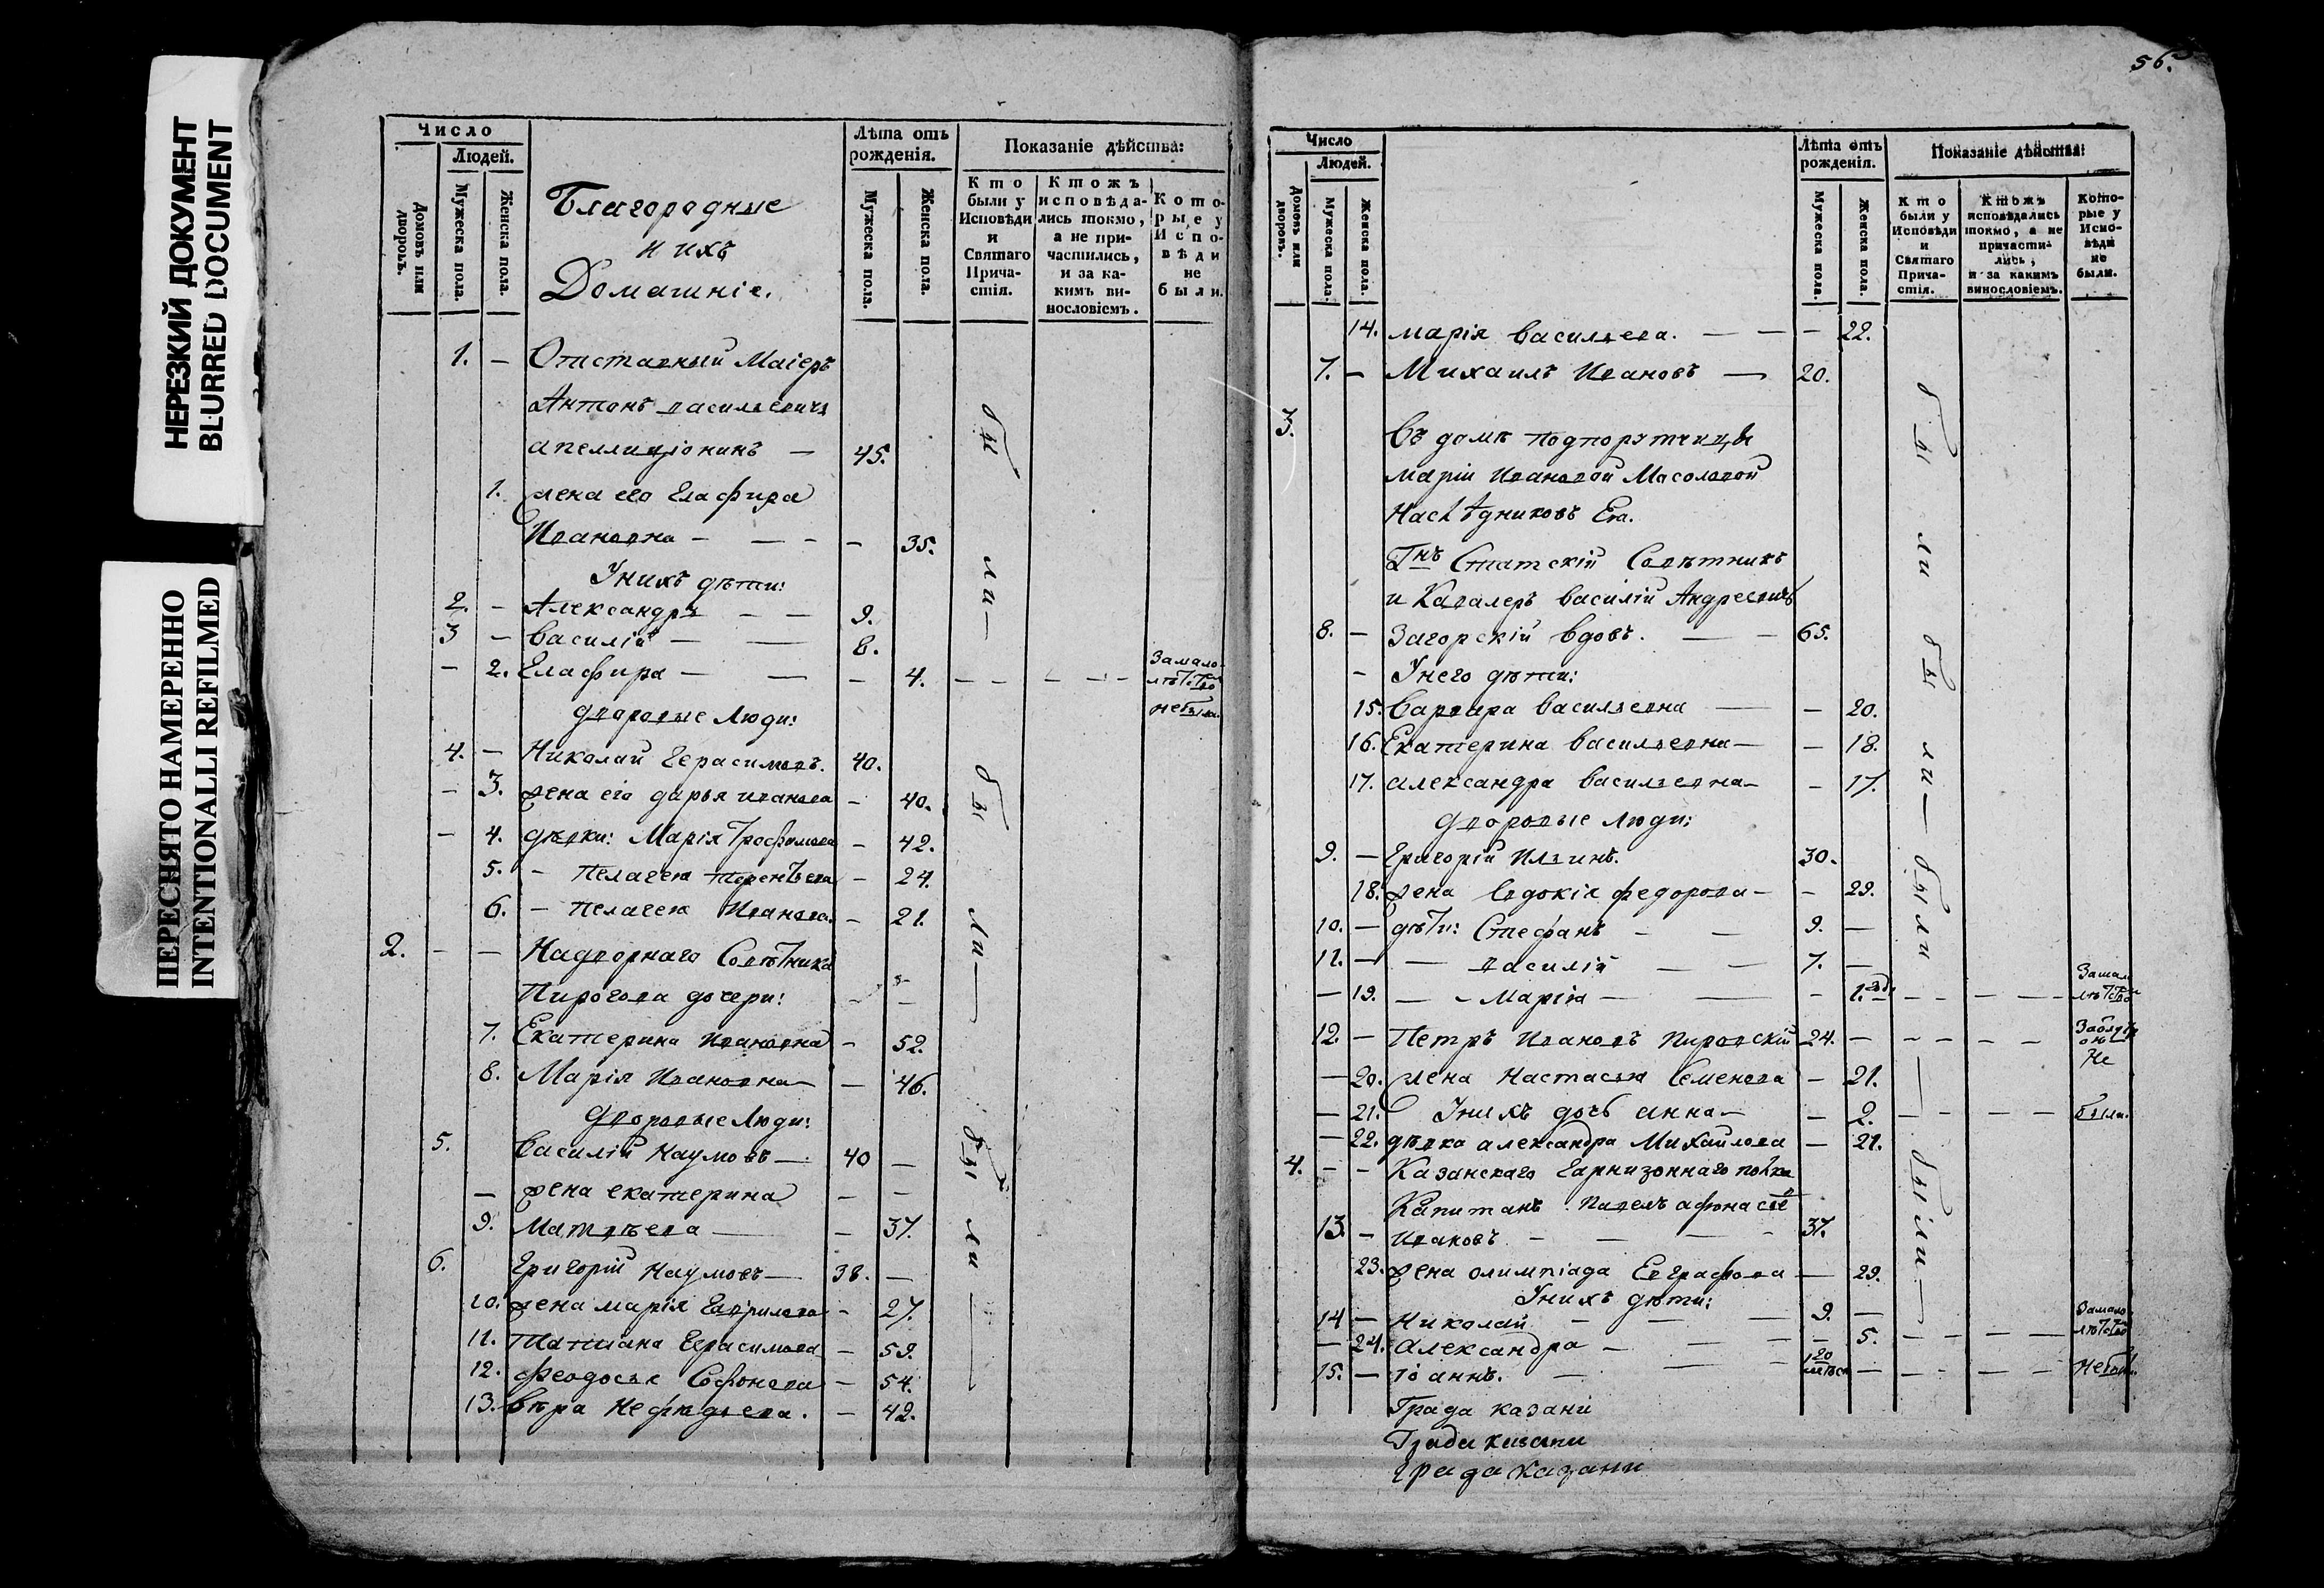 НЕРЕЗКИЙ ДОКУМЕНТ
BLURRED DOCUMENT
ПЕРЕСНЯТО НАМЕРЕННО
INTENTIONALLI REFILMED
Число
Людей.
Домовъ или дворовъ.
Мужеска пола.
Женска пола.
Благородные
и ихъ
Домашніе.
Лѣта отъ рожденія.
Мужеска пола.
Женска пола.
Показаніе дѣйства:
Кто были у Исповѣди и Святаго Причастія.
Ктожъ исповѣдались токмо, а не причастились, и за какимъ винословіемъ.
Которые у Исповѣди не были.
1. — Отставный Маіеръ
Антонъ Васильевичъ
апеллиціонинъ — 45.
1. жена его Глафира
Ивановна — — — 35.
У нихъ дѣти:
2. — Александръ — — 9.
3 — Василій — — 8.
— 2. Глафира — — — 4. — — — — — За мало-
лѣтство
не была.
Дворовые Люди:
4. — Николай Герасимовъ. 40.
— 3. жена его дарья иванова — 40.
— 4. дѣвки: Марія Трофимова — 42.
5. — Пелагея Терентьева — 24.
6. — Пелагея Иванова. — 21.
2. — — Надворнаго Совѣтника
Пирогова дочери: — —
7. Екатерина Ивановна — 52.
8. Марія Ивановна — — 46.
Дворовые Люди:
5. Василій Наумовъ — 40 —
— жена екатерина — —
9. Матвѣева — — 37.
6. Григорій Наумовъ — 38. —
10. жена марія Гаврилова — 27.
11. Татиана Герасимова — 59.
12. Феодосья Софонова — 54.
13. Вѣра Нефедьева. — 42.
бы
ли —
бы
ли —
бы
ли —
56.
Число
Людей.
Домовъ или дворовъ.
Мужеска пола.
Женска пола.
Лѣта отъ рожденія.
Мужеска пола.
Женска пола.
Показаніе дѣйства:
Кто были у Исповѣди и Святаго Причастія.
Ктожъ исповѣдались токмо, а не причастились, и за какимъ винословіемъ.
Которые у Исповѣди не были.
14. марія Васильева. — — — 22.
7. — Михаилъ Ивановъ — 20.
3. Въ домѣ подпорутчицы
маріи Ивановой Масоловой
Наслѣдниковъ Ея.
Гнъ Статскій Совѣтникъ
и Кавалеръ Василій Андреевичъ
8. — Загорскій вдовъ. — — 65.
— У него дѣти:
15. Варвара Васильевна — — 20.
16. Екатерина Васильевна — — 18.
17. александра Васильевна — — 17.
Дворовые Люди:
9. — Григорій Ильинъ. 30.
18. жена Евдокія федорова — — 29.
10. — дѣти: Стефанъ — — 9. —
11. — — василій — — 7. —
— 19. — — Марія — — — 1. — — — — —
лѣтство
12. — Петръ Ивановъ Пировскій 24. — — — — —
Не
— 20. жена Настасья Семенова — 21.
— 21. У нихъ дочь анна — — 2. — — — — были.
— 22. дѣвка александра Михайлова — 21.
4. — — Казанскаго Гарнизоннаго полка
Капитанъ Павелъ
13. — Ивановъ — — — — 37.
23. жена олимпіада Евграфова — 29.
У нихъ дѣти:
14 — Николай — — — 9. —
— 24. Александра — — — — 5. — — — — За мало-
лѣтство
15. — Іоаннъ. — — — 20 — — — — — не были.
бы
ли
бы
ли —
были
были —
Града казани
Града казани
града казани